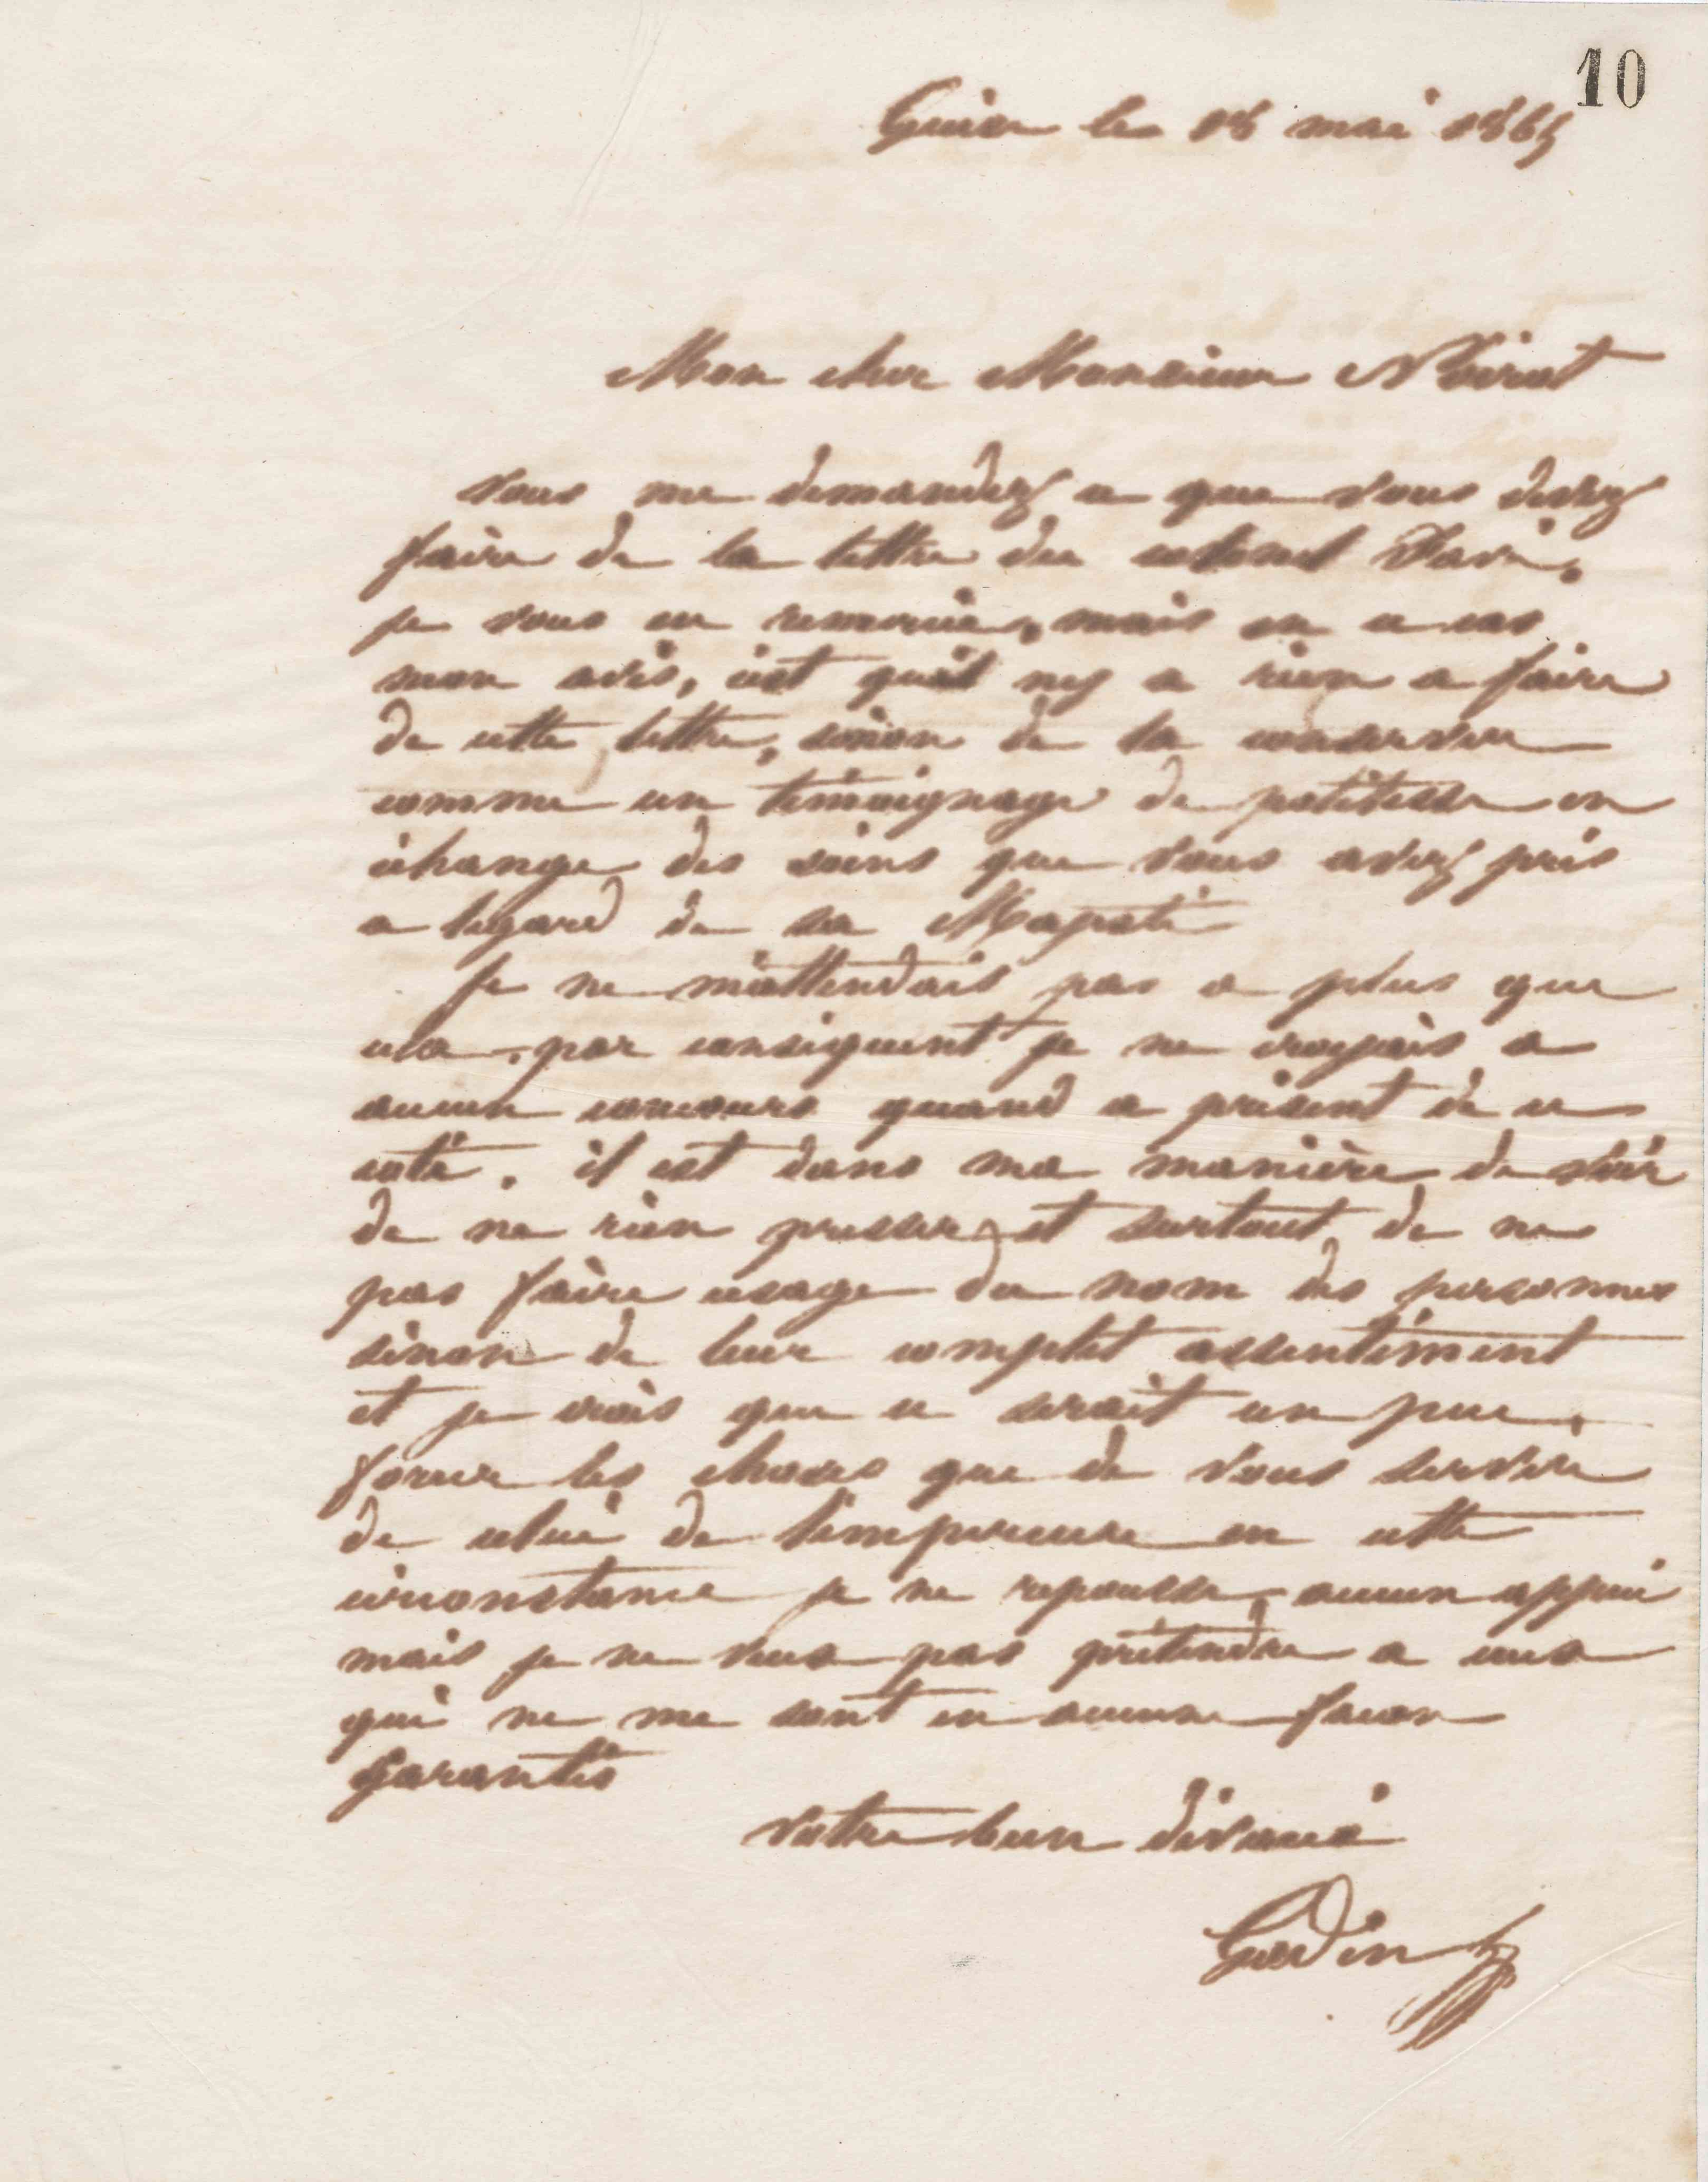 10
Guise le 18 mai 1865
Mon cher Monsieur Noirot
Vous me demandez ce que vous devez
faire de la lettre du colonel Favé.
je vous en remercie, mais en ce cas
mon avis, c'est qu'il n'y a rien a faire
de cette lettre, sinon de la conserver
comme un témoignage de politesse en
échange des soins que vous avez pris
a l'égard de sa Majesté
Je ne m'attendais pas a plus que
cela, par conséquent je ne croyais a
aucun concours quand a présent de ce
coté. il est dans ma manière de voir
de ne rien presser et surtout de ne
pas faire usage du nom des personnes
sinon de leur complet assentiment
et je crois que ce serait un peu
forcer les choses que de vous servir
de celui de l'empereur en cette
circonstance je ne repousse aucun appui
mais je ne veux pas prétendre a ceux
qui ne me sont en aucune facon
garantis
Votre bien dévoué
Godin